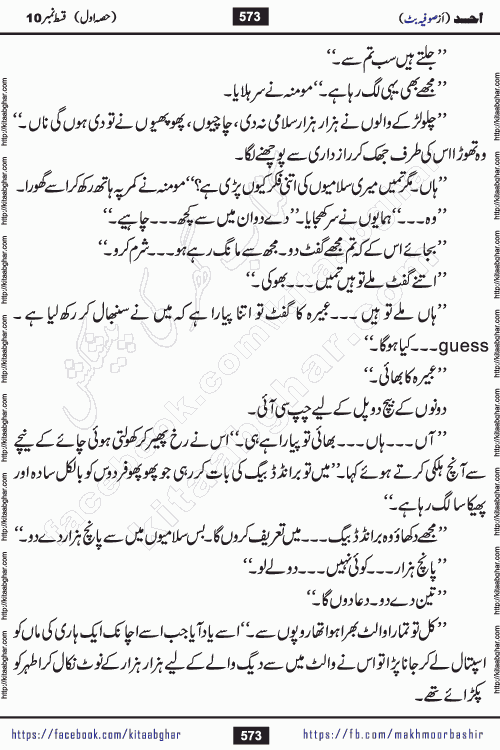 احد (از صوفیہ بٹ) 573 (حصہ اول) قسط نمبر 10
’’جلتے ہیں سب تم سے۔‘‘
’’مجھے بھی یہی لگ رہا ہے۔‘‘ مومنہ نے سر ہلایا۔
’’چلو لڑکے والوں نے ہزار ہزار سلامی نہ دی، چاچیوں، پھوپھیوں نے تو دی ہوں گی ناں۔‘‘
وہ تھوڑا اس کی طرف جھک کر رازداری سے پوچھنے لگا۔
’’ہاں۔ مگر تمہیں میری سلامیوں کی اتنی فکر کیوں پڑی ہے؟‘‘ مومنہ نے کمر پہ ہاتھ رکھ کر اسے گھورا۔
’’وہ۔۔۔‘‘ ہمایوں نے سر کھجایا۔ ’’دے دو ان میں سے کچھ۔۔۔ چاہیے۔‘‘
’’بجائے اس کے کہ تم مجھے گفٹ دو۔ مجھ سے مانگ رہے ہو۔۔۔ شرم کرو۔‘‘
’’اتنے گفٹ ملے تو ہیں تمہیں۔۔۔ بھوکی۔‘‘
’’ہاں ملے تو ہیں ۔۔۔ عبیرہ کا گفٹ تو اتنا پیارا ہے کہ میں نے سنبھال کر رکھ لیا ہے ۔
guess۔۔۔ کیا ہوگا۔‘‘
’’عبیرہ کا بھائی۔‘‘
دونوں کے بیچ دو پل کے لیے چپ سی آئی۔
’’آں۔۔۔ ہاں۔۔۔ بھائی تو پیارا ہے ہی۔‘‘ اس نے رخ پھیر کر کھولتی ہوئی چائے کے نیچے
سے آنچ ہلکی کرتے ہوئے کہا۔ ’’میں تو برانڈڈ بیگ کی بات کر رہی جو پھوپھو فردوس کو بالکل سادہ اور
پھیکا سا لگ رہا ہے۔‘‘
’’مجھے دکھاؤ وہ برانڈڈ بیگ۔۔۔ میں تعریف کروں گا۔ بس سلامیوں میں سے پانچ ہزار دے دو۔‘‘
’’پانچ ہزار۔۔۔ کوئی نہیں۔۔۔ دو لے لو۔‘‘
’’تین دے دو۔ دعا دوں گا۔‘‘
’’کل تو تمہارا والٹ بھرا ہوا تھا روپوں سے۔‘‘ اسے یاد آیا جب اسے اچانک ایک ہاری کی ماں کو
اسپتال لے کر جانا پڑا تو اس نے والٹ میں سے دیگ والے کے لیے ہزار ہزار کے نوٹ نکال کر اطہر کو
پکڑائے تھے۔
https://facebook.com/kitaabghar 573 https://fb.com/makhmoorbashir
http://kitaabghar.com
facebook.com/kitaabghar
kitaabghar.com